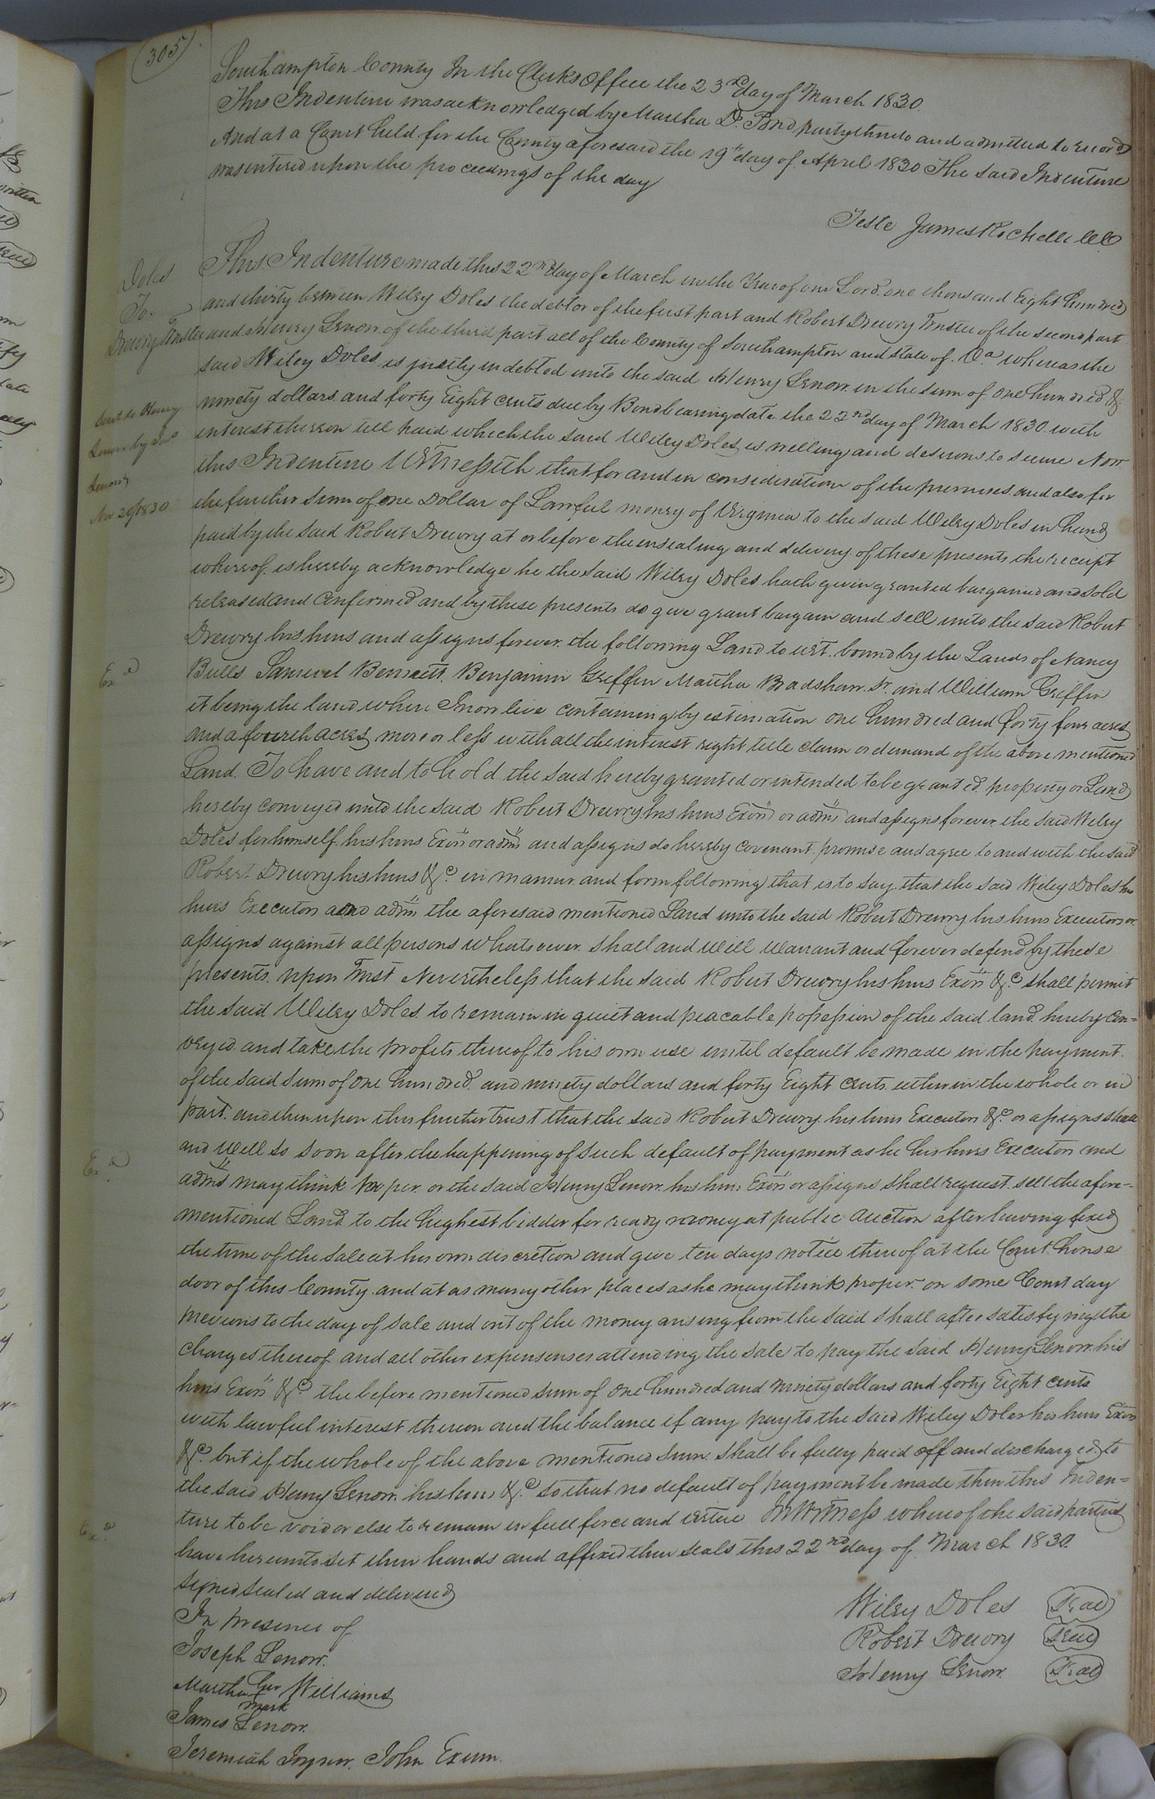 (305)
Southampton County In the Clerks Office the 23rd day of March 1830
This Indenture was acknowledged by Martha D. Bird party thereto and admitted to record
And at a Court held for the County aforesaid the 19th day of April 1830 The said Indenture
was entered upon the proceedings of the day
Teste James Rochelle CC
Doles
To
Drewry Trustee
Sent to Henry
Lenow by Jos
Lenow
Nov 29 1830
This Indenture made this 22nd day of March in the Year of our Lord one thousand Eight hundred
and thirty between Wiley Doles the debtor of the first part and Robert Drewry Trustee of the second part
and Henry Lenow of the third part all of the County of Southampton and State of Va whereas the
said Wiley Doles is justly indebted unto the said Henry Lenow in the sum of one hundred &
ninety dollars and forty Eight cents due by Bond bearing date the 22nd day of March 1830 with
interest thereon till paid which the said Wiley Doles is willing and desirous to secure Now
this Indenture Witnesseth that for and in consideration of the premises and also for
the further sum of one Dollar of Lawful money of Virginia to the said Wiley Doles in hand
paid by the said Robert Drewry at or before the ensealing and delivery of these presents the receipt
whereof is hereby acknowledge he the said Wiley Doles hath given granted bargained and sold
released and confirmed and by these presents do give grant bargain and sell unto the said Robert
Drewry his heirs and assigns forever the following Land to wit. bound by the Lands of Nancy
Bulls Samuel Bennett, Benjamin Griffin Martha Bradshaw Sr. and William Griffin
Exd
it being the land where I now live containing by estimation one hundred and forty four acres
and a fourth acres more or less with all the interest right title claim or demand of the above mentioned
Land To have and to hold the said hereby granted or intended to be granted property or Land
hereby conveyed unto the said Robert Drewry his heirs Exors or adms and assigns forever the said Wiley
Doles for himself his heirs Exors or adms and assigns do hereby covenant promise and agree to and with the said
Robert Drewry his heirs &c in manner and form following that is to say, that the said Wiley Doles his
heirs Executors and adms the aforesaid mentioned Land unto the said Robert Drewry his heirs Executors or
assigns against all persons whatsoever shall and will warrant and forever defend by these
presents, upon Trust Nevertheless that the said Robert Drewry his heirs Exors &c shall permit
the said Wiley Doles to remain in quiet and peacable possession of the said land hereby con=
veyed and take the profits thereof to his own use until default be made in the payment
of the said sum of one hundred and ninety dollars and forty Eight cents either in the whole or in
part and then upon this further trust that the said Robert Drewry his heirs Executors &c or assigns shall
and will so soon after the happening of such default of payment as he his heirs Executors and
Exd
adms may think proper or the said Henry Lenow his heirs Exors or assigns shall request sell the afore=
mentioned Land to the highest bidder for ready money at public auction after having fixed
the time of the sale at his own discretion and give ten days notice thereof at the Court house
door of this County and at as many other places as he may think proper on some Court day
previous to the day of sale and out of the money arising from the said shall after satisfying the
charges thereof and all other expensenses attending the sale to pay the said Henry Lenow his
heirs Exors &c the before mentioned sum of one hundred and ninety dollars and forty Eight cents
with lawful interest thereon and the balance if any pay to the said Wiley Doles his heirs Exors
&c but if the whole of the above mentioned sum shall be fully paid off and discharged to
the said Henry Lenow his heirs &c so that no default of payment be made then this Inden=
Exd
ture to be void or else to remain in full force and virtue In Witness whereof the said parties
have hereunto set their hands and affixed their seals this 22nd day of March 1830
Signed sealed and delivered
In presence of
Joseph Lenow
Martha her Williams
mark
James Lenow
Jeremiah Joyner. John Exum
Wiley Doles Seal
Robert Drewry Seal
Henry Lenow Seal